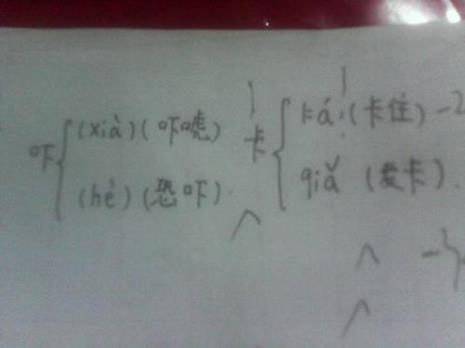 吓 (xià)(吓唬)
(hè)(恐吓).
卡 kǎ (卡住) -2
qiǎ (发卡).